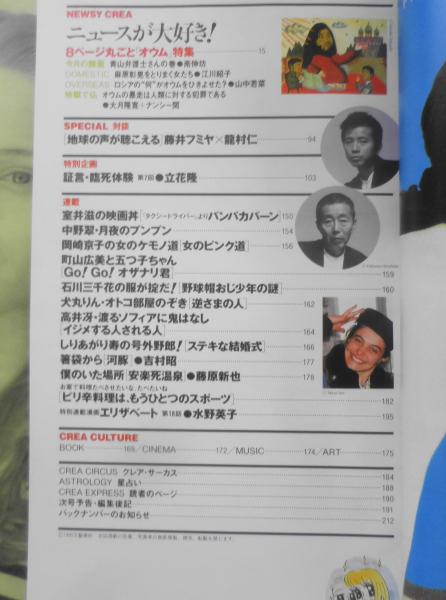 NEWSY CREA
ニュースが大好き!
8ページ丸ごと「オウム」特集 15
今月の顔面 青山弁護士さんの巻●南伸坊
DOMESTIC 麻原彰晃をとりまく女たち●江川紹子
OVERSEAS ロシアの"何"がオウムをひきよせた?●山中若菜
地獄で仏 オウムの暴走は人類に対する犯罪である
●大月隆寛+ナンシー関
SPECIAL 対談
[地球の声が聴こえる]藤井フミヤ×龍村仁 94
特別企画
証言・臨死体験 第7回●立花隆 103
連載
室井滋の映画丼[「タクシードライバー」よりバンバカバーン] 150
中野翠・月夜のプンプン 154
岡崎京子の女のケモノ道[女のピンク道] 156
町山広美と五つ子ちゃん
[Go! Go! オザナリ君] 159
石川三千花の服が掟だ![野球帽おじ少年の謎] 160
犬丸りん・オトコ部屋のぞき[逆さまの人] 162
高井冴・渡るソフィアに鬼はなし
[イジメする人される人] 164
しりあがり寿の号外野郎![ステキな結婚式] 166
箸袋から[河豚]●吉村昭 177
僕のいた場所[安楽死温泉]●藤原新也 178
お家で料理たべさせたいな、たべたいね
[ピリ辛料理は、もうひとつのスポーツ] 182
特別連載漫画 エリザベート 第18話●水野英子 195
CREA CULTURE
BOOK 169/CINEMA 172/MUSIC 174/ART 175
CREA CIRCUS クレア・サーカス 184
ASTROLOGY 星占い 188
CREA EXPRESS 読者のページ 190
次号予告・編集後記 191
バックナンバーのお知らせ 212